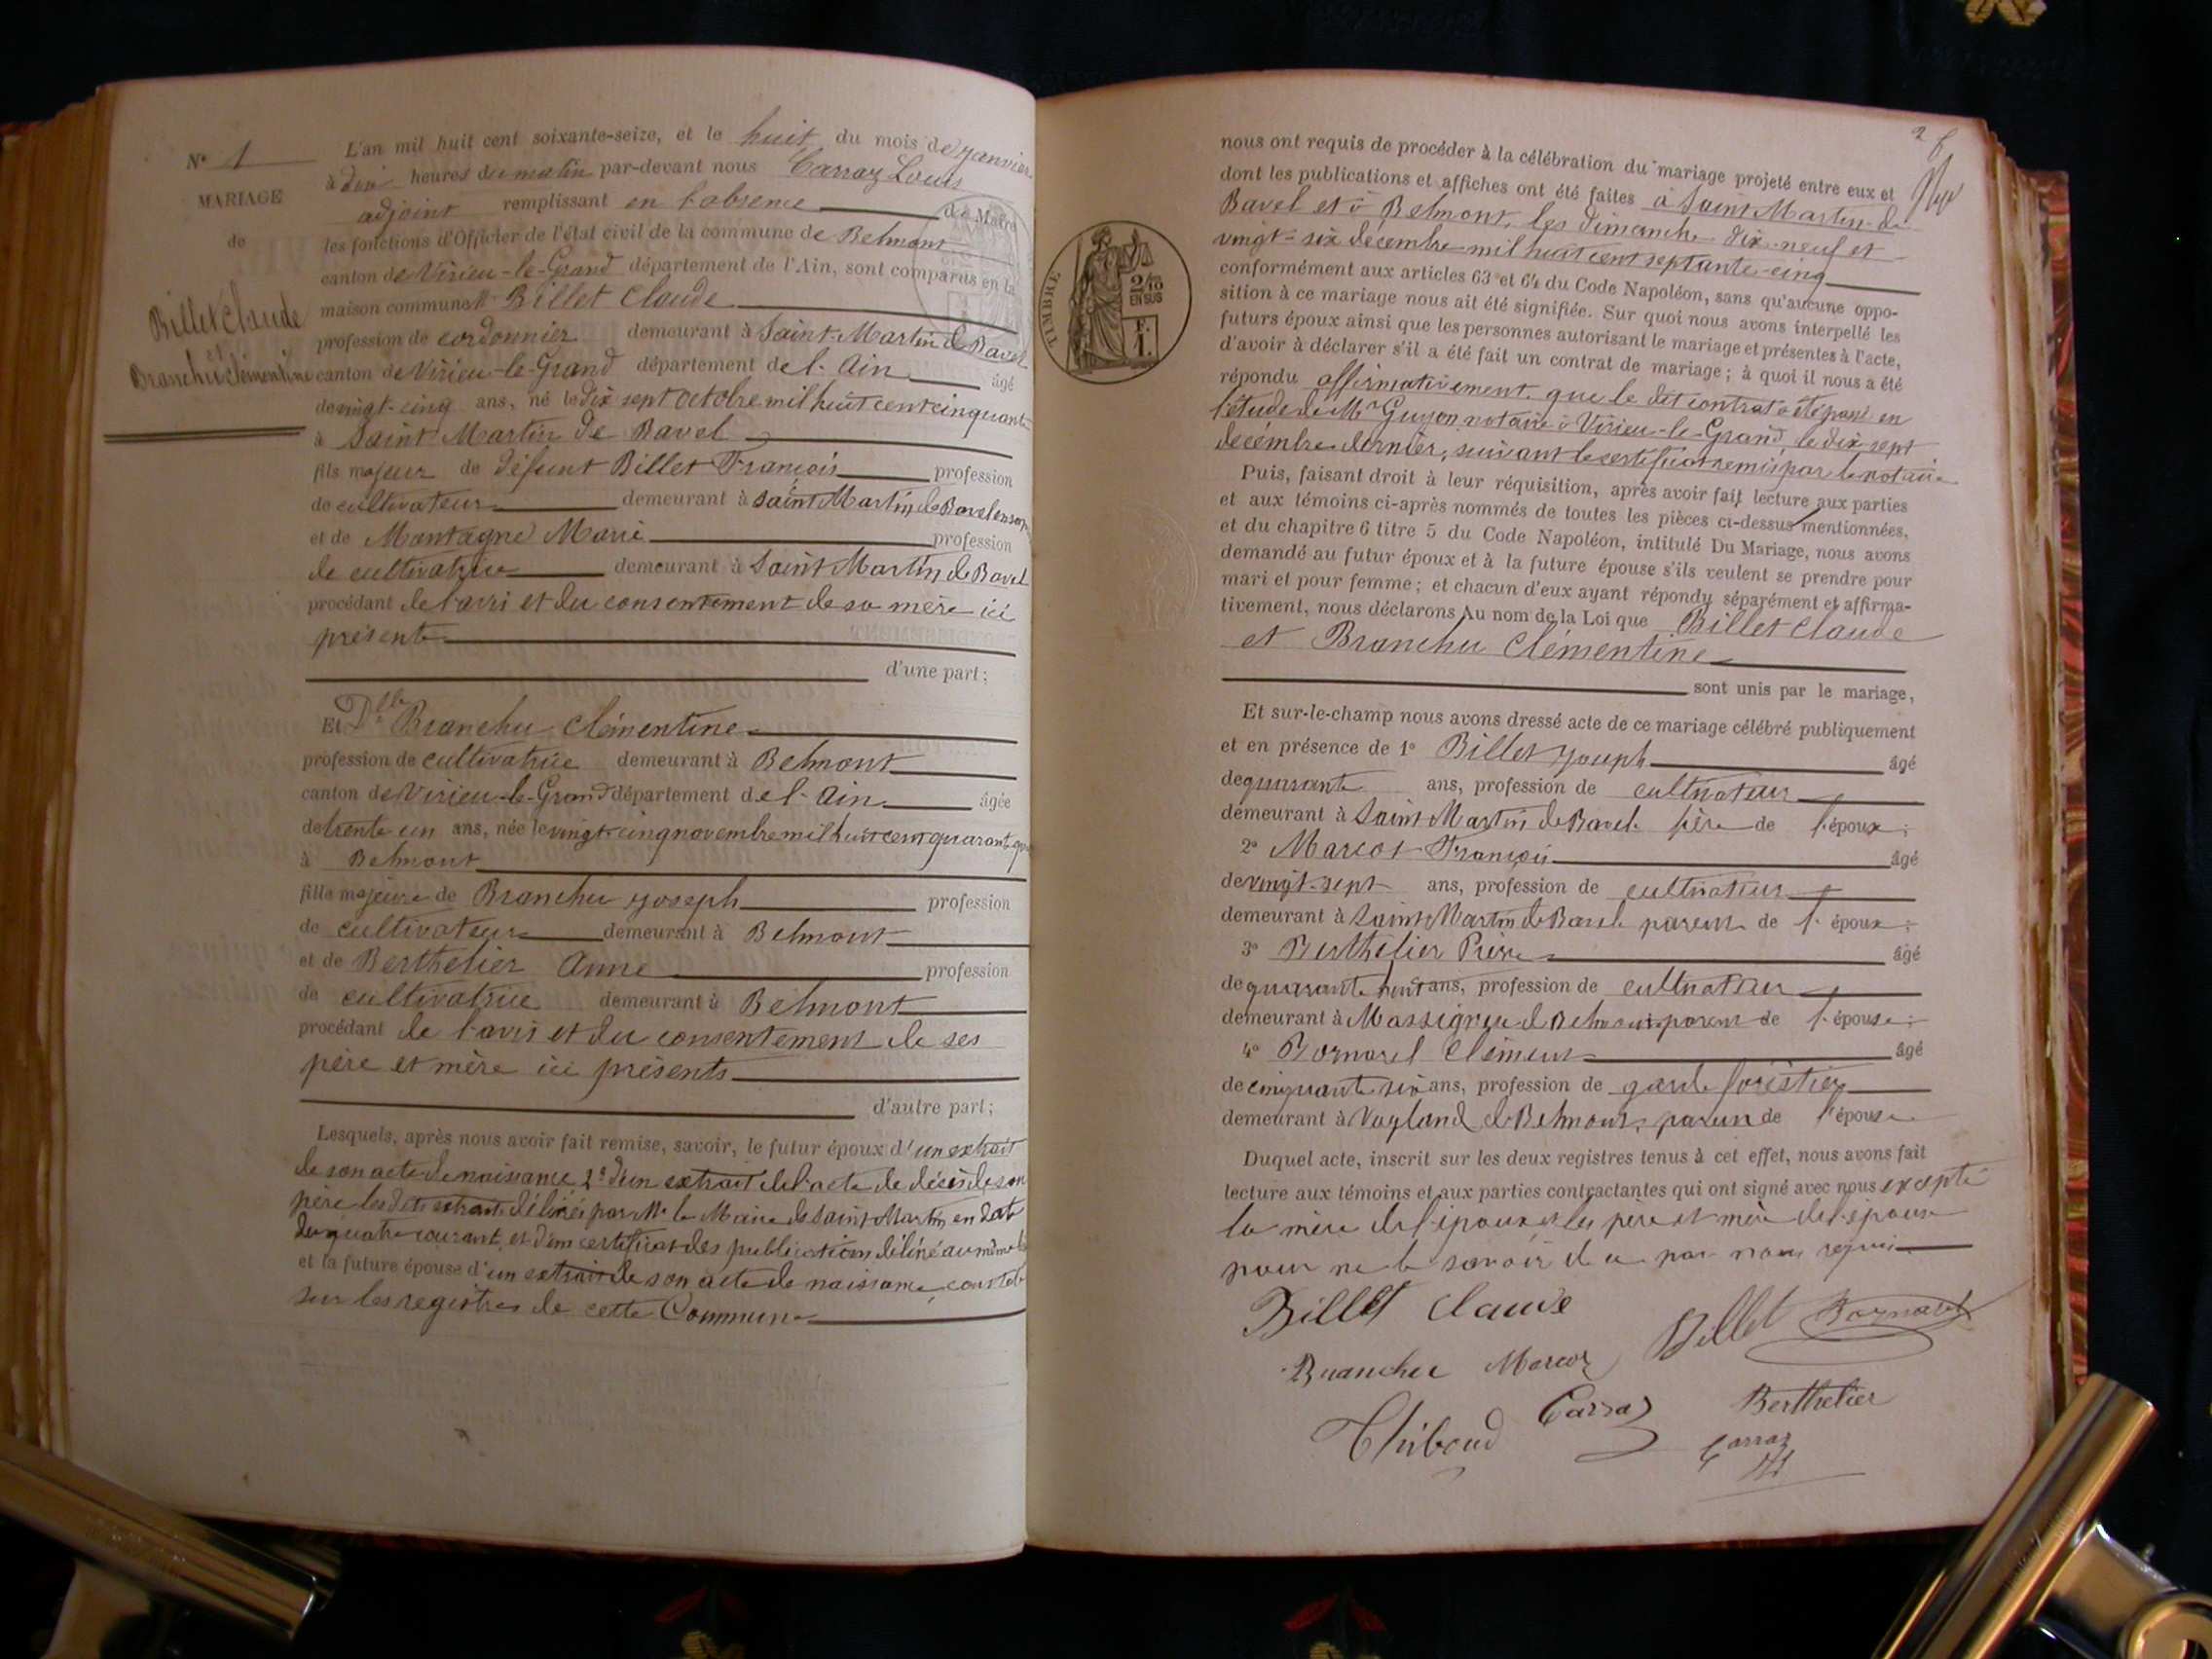 N° 1
MARIAGE
de
Billet Claude
et
Branchu Clémentine
L'an mil huit cent soixante-seize, et le huit du mois de janvier
à dix heures du matin par-devant nous Carraz Louis
adjoint remplissant en l'absence de Maire
les fonctions d'Officier de l'état civil de la commune de Belmont
canton de Virieu-le-Grand département de l'Ain, sont comparus en la
maison commune Mr Billet Claude
profession de cordonnier demeurant à Saint-Martin de Bavel
canton de Virieu-le-Grand département de l'Ain âgé
de vingt-cinq ans, né le dix sept octobre mil huit cent cinquante
à Saint Martin de Bavel
fils majeur de défunt Billet François profession
de cultivateur demeurant à Saint Martin de Bavel en son
et de Montagne Marie profession
de cultivatrice demeurant à Saint Martin de Bavel
procédant de l'avis et du consentement de sa mère ici
présente
d'une part;
Et Dlle Branchu Clémentine
profession de cultivatrice demeurant à Belmont
canton de Virieu-le-Grand département de l'Ain âgée
de trente un ans, née le vingt-cinq novembre mil huit cent quarante
à Belmont
fille majeure de Branchu Joseph profession
de cultivateur demeurant à Belmont
et de Berthelier Anne profession
de cultivatrice demeurant à Belmont
procédant de l'avis et du consentement de ses
père et mère ici présents
d'autre part;
Lesquels, après nous avoir fait remise, savoir, le futur époux d'un extrait
de son acte de naissance 2° d'un extrait de l'acte de décès de son
père les dits extraits délivrés par Mr le Maire de Saint Martin en date
du quatre courant, et d'un certificat des publications délivré au même
et la future épouse d'un extrait de son acte de naissance, constaté
sur les registres de cette Commune
2
nous ont requis de procéder à la célébration du mariage projeté entre eux et
dont les publications et affiches ont été faites à Saint Martin-de
Bavel et à Belmont, les dimanche dix-neuf et
vingt-six décembre mil huit cent septante-cinq
conformément aux articles 63 et 64 du Code Napoléon, sans qu'aucune oppo-
sition à ce mariage nous ait été signifiée. Sur quoi nous avons interpellé les
futurs époux ainsi que les personnes autorisant le mariage et présentes à l'acte,
d'avoir à déclarer s'il a été fait un contrat de mariage; à quoi il nous a été
répondu affirmativement. que le dit contrat a été passé en
l'étude de Mr Guyon notaire à Virieu-le-Grand, le dix sept
décembre dernier, suivant le certificat remis par le notaire
Puis, faisant droit à leur réquisition, après avoir fait lecture aux parties
et aux témoins ci-après nommés de toutes les pièces ci-dessus mentionnées,
et du chapitre 6 titre 5 du Code Napoléon, intitulé Du Mariage, nous avons
demandé au futur époux et à la future épouse s'ils veulent se prendre pour
mari et pour femme; et chacun d'eux ayant répondu séparément et affirma-
tivement, nous déclarons Au nom de la Loi que Billet Claude
et Branchu Clémentine
sont unis par le mariage,
Et sur-le-champ nous avons dressé acte de ce mariage célébré publiquement
et en présence de 1° Billet Joseph âgé
de quarante ans, profession de cultivateur
demeurant à Saint Martin de Bavel. frère de l'époux;
2° Marcot François âgé
de vingt-sept ans, profession de cultivateur
demeurant à Saint Martin de Bavel parent de l'époux;
3° Berthelier Pierre âgé
de quarante huit ans, profession de cultivateur
demeurant à Massignieu de Belmont parent de l'épouse;
4° Bornarel Clément âgé
de cinquante six ans, profession de garde forestier
demeurant à Vogland de Belmont, parent de l'épouse
Duquel acte, inscrit sur les deux registres tenus à cet effet, nous avons fait
lecture aux témoins et aux parties contractantes qui ont signé avec nous excepté
la mère de l'époux et les père et mère de l'épouse
pour ne le savoir de ce par nous requis
Billet Claude
Billet Bornarel
Branchu Marcot
Thiboud Carraz Berthelier
Carraz
TIMBRE
2/10
EN SUS
F.
1.